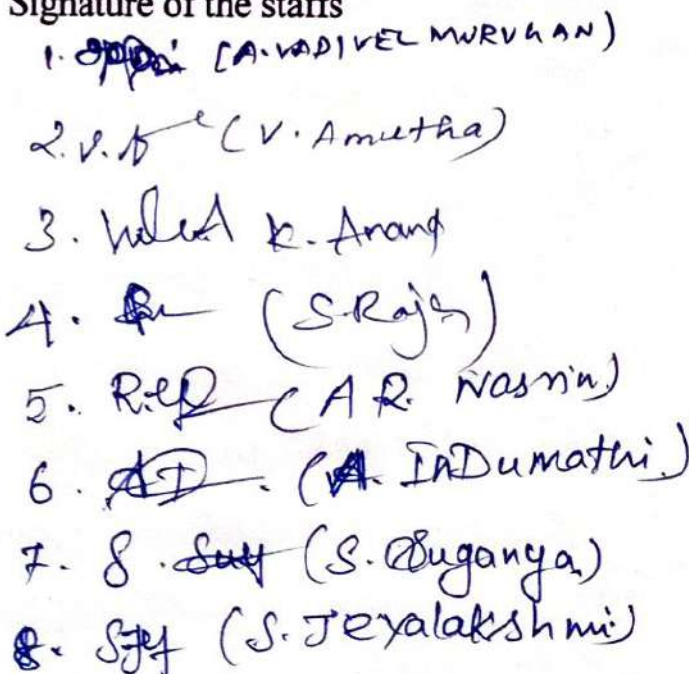 Signature of the staffs
1. (A. VADIVEL MURUGAN)
2. V.A (V. Amutha)
3. K. Anand
4. (S. Raja)
5. (A R. Nasrin)
6. AI. (A. InDumathi.)
7. S. Suy (S. Suganya)
8. SJey (S. Jeyalakshmi)